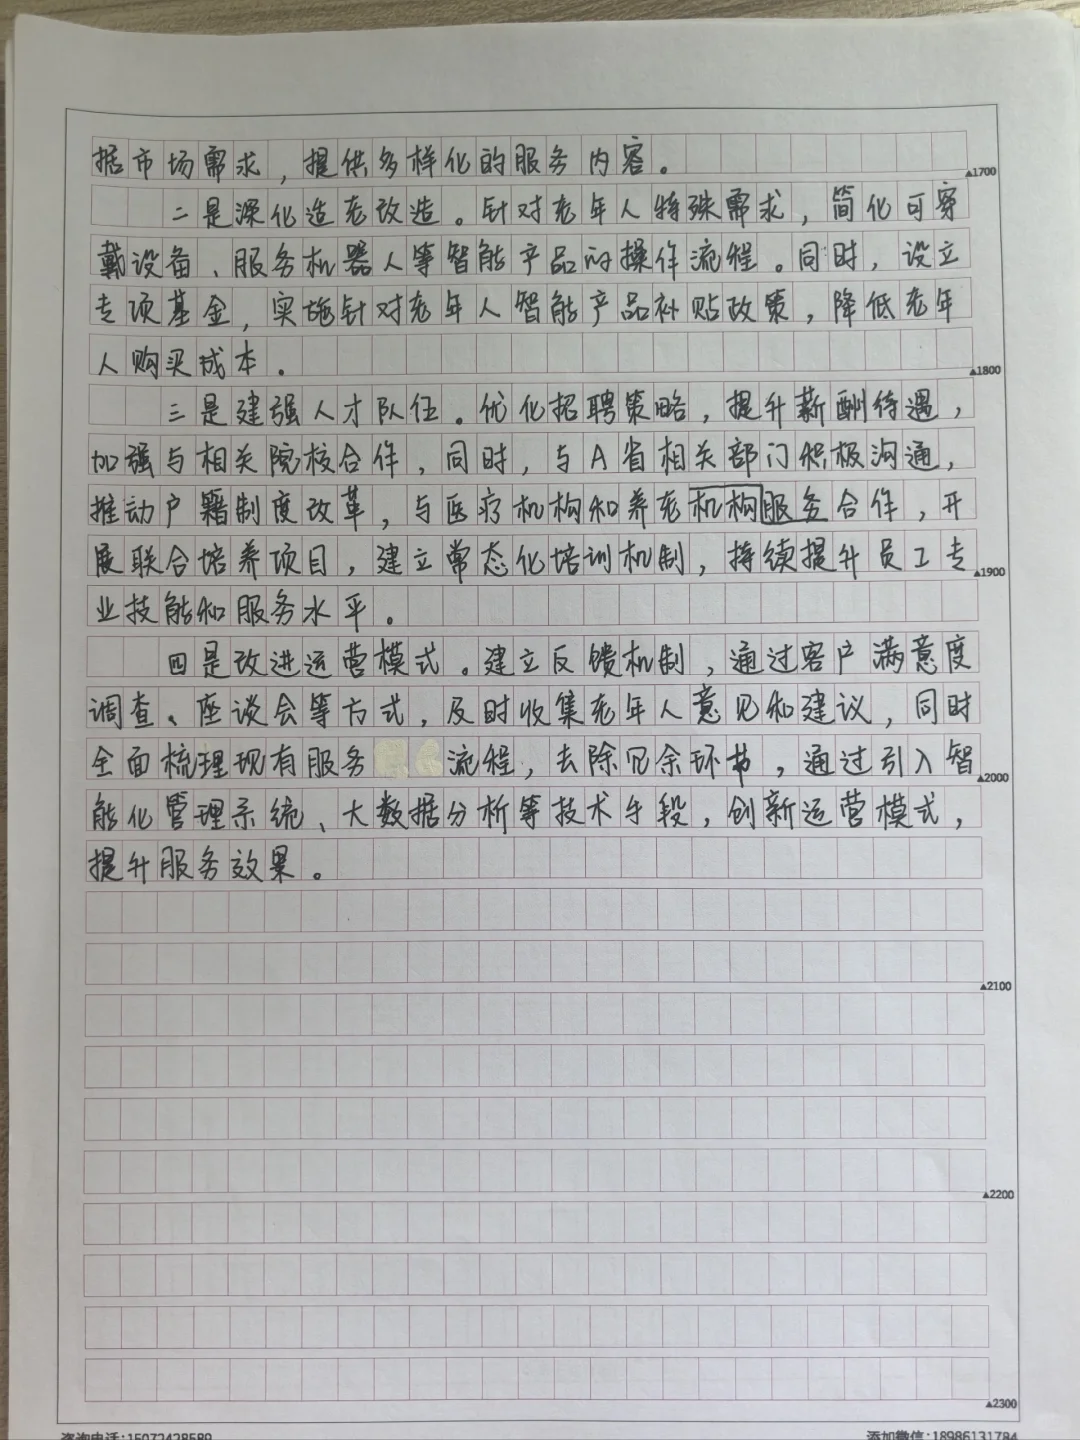 据市场需求，提供多样化的服务内容。
▲1700
二是深化适老改造。针对老年人特殊需求，简化可穿
戴设备、服务机器人等智能产品的操作流程。同时，设立
专项基金，实施针对老年人智能产品补贴政策，降低老年
人购买成本。
▲1800
三是建强人才队伍。优化招聘策略，提升薪酬待遇，
加强与相关院校合作，同时，与A省相关部门积极沟通，
推动户籍制度改革，与医疗机构和养老机构服务合作，开
展联合培养项目，建立常态化培训机制，持续提升员工专
▲1900
业技能和服务水平。
四是改进运营模式。建立反馈机制，通过客户满意度
调查、座谈会等方式，及时收集老年人意见和建议，同时
全面梳理现有服务流程，去除冗余环节，通过引入智
▲2000
能化管理系统、大数据分析等技术手段，创新运营模式，
提升服务效果。
▲2100
▲2200
▲2300
咨询电话:15072428589
添加微信:18986131784